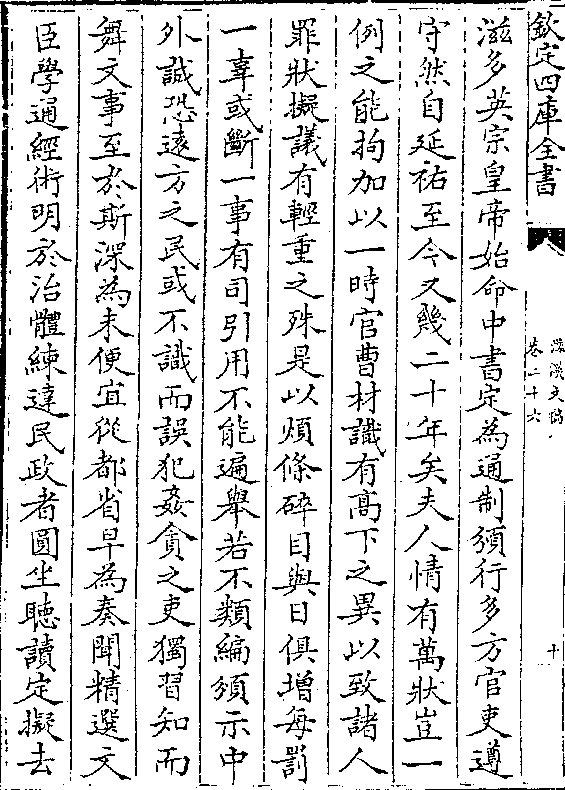 欽定四庫全書
滋溪文稿
卷二十六
十
滋多英宗皇帝始命中書定為通制頒行多方官吏遵
守然自延祐至今又幾二十年矣夫人情有萬狀豈一
例之能拘加以一時官曹材識有髙下之異以致諸人
罪狀擬議有輕重之殊是以煩條碎目與日俱增每罰
一辜或斷一事有司引用不能遍舉若不類編頒示中
外誠恐逺方之民或不識而誤犯姦貪之吏獨習知而
舞文事至於斯深為未便宜從都省早為奏聞精選文
臣學通經術明於治體練達民政者圓坐聽讀定擬去